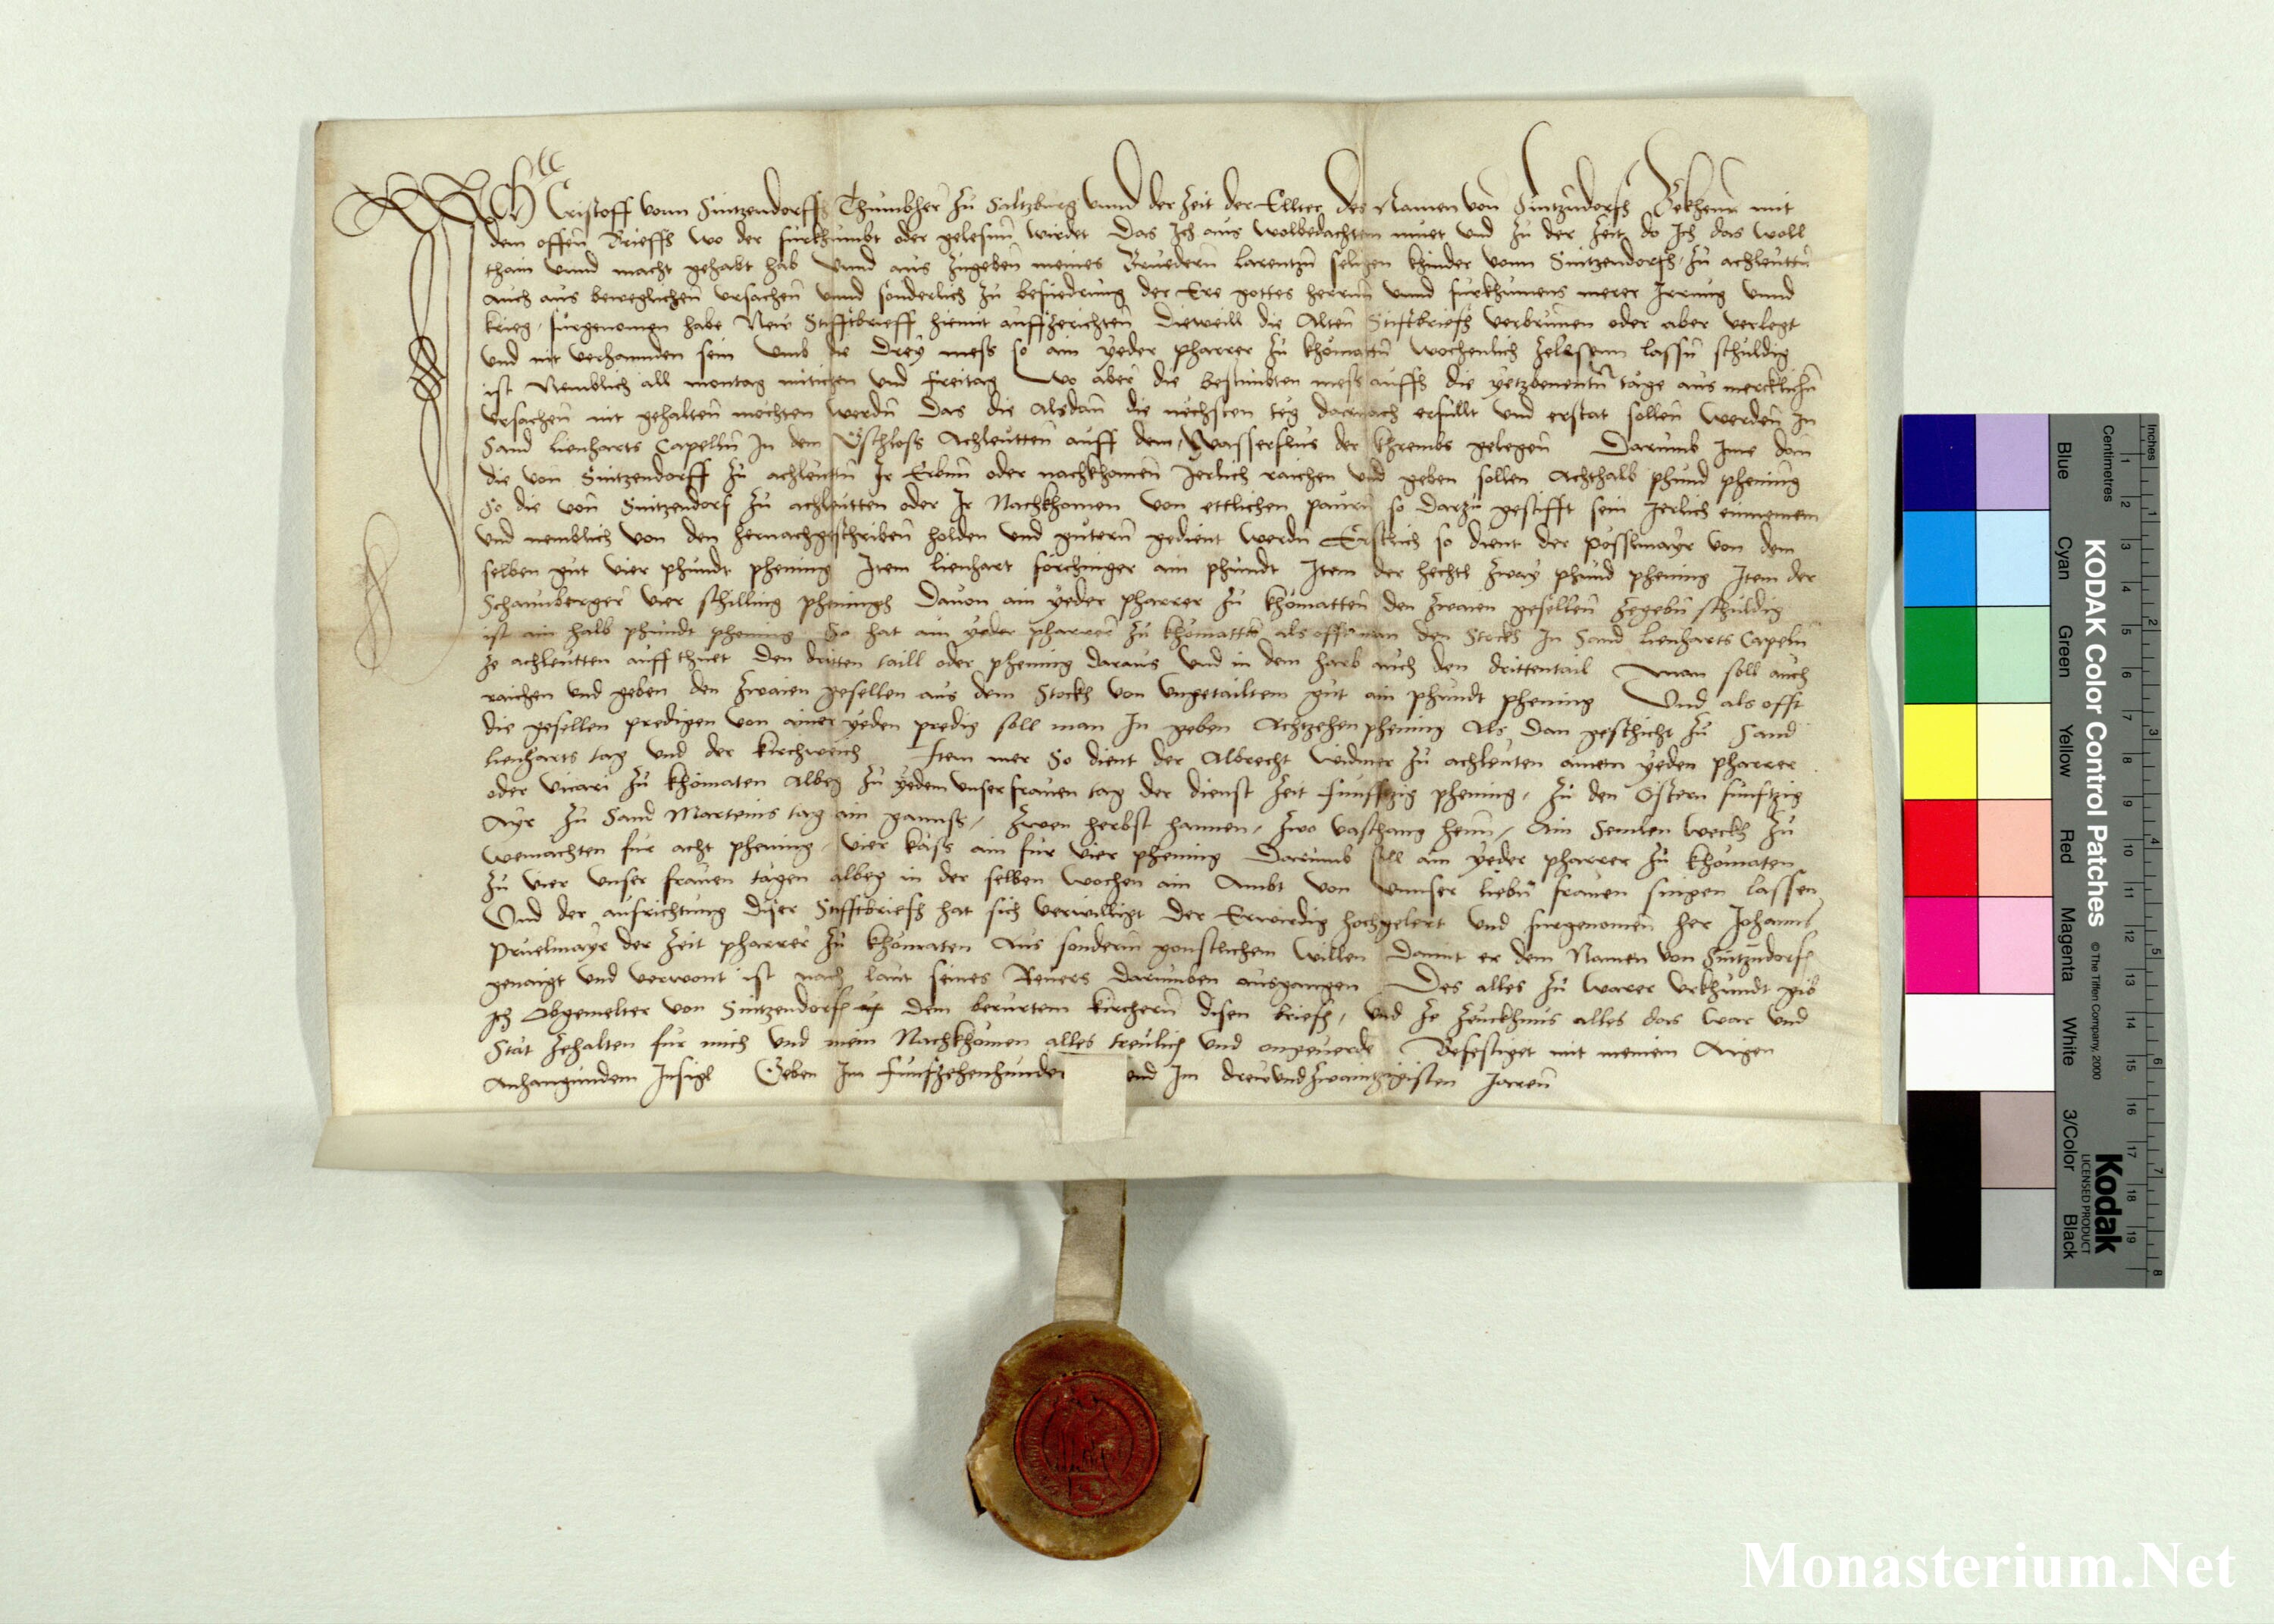 Ich Cristoff vonn Sintzendorff Thumbher zu Saltzburg vnnd der zeit der Ellter des Namen von Sintzndorff Bekhenn mit
dem offen Brieff wo der furkhumbt oder gelesenn wirdet Das Ich aus wolbedachtem muet vnd zu der zeit do Ich das woll
thain vnnd macht gehabt hab vnnd aus zugeben meines Bruedern Larentzn seligen khinder vonn Sintzendorff zu achleuttn
auch aus beweglichen vrsachen vnnd sonderlich zu befudrung der Ere gottes herrnn vnnd furkhumens merer Irrung vnnd
krieg furgenomen habe New Stifftbrieff hiemit auffzerichten Dieweill die Alten Stiftbrieff verbrunen oder aber verlegt
vnd nit verhannden sein vmb die Drey mess so ain yeder pharrer zu khomattn wochenlich zelesenn lassn schuldig
ist Nemblich all montag mitichen vnd freitag Wo aber die bestimbten mess auff die yetzbenentn tage aus mercklichn
vrsachen nit gehalten mochten werdn Das die Alsdan die nechsten teg darnach erfullt vnd erstat sollen werden In
Sand Lienharts Capelln In dem Gschloss Achleutten auff dem Wasserflus der khrembs gelegen Darumb Ime dan
die von Sintzendorff zu achleuttn Ir Erbnn oder nachkhomen Jerlich raichen vnd geben sollen Achthalb phund phening
So die von Sintzendorf zu achleutten oder Ir Nachkhomen von ettlichen paurn so darzu gestifft sein Jerlich einnemem
vnd nemblich von den hernachgschriben holden vnd guetern gedient werdn Erstlich so dient der posslmayr von dem
selben gut vier phundt phening Item Lienhart forchinger ain phundt Item der hechtl zway phund phening Item der
Schaunberger vier schilling phenings Dauon ain yeder pharrer zu khomatten den zwaien gesellen zegebn schuldig
ist ain halb phundt phening So hat ain yeder pharrer zu khomattn als offt man den Stockh In Sand Lienharts Capeln
ze achleutten auff thuet Den dritten taill oder phening daraus vnd in dem harb auch den drittentail man soll auch
raichen vnd geben den zwaien gesellen aus dem Stockh von vngetailtem gut ain phundt phening Vnd als offt
die gesellen predigen von ainer yeden predig soll man In geben Achtzehen phening Als Dan geschicht zu Sand
Lienharts tag vnd der kirchweich Item mer So dient der Albrecht widmer zu achleuten ainem yeden pharrer
oder vicari zu khomaten Albeg zu yedem vnser frauen tag der dienst zeit funffzig phening, zu den Ostern funfzig
Ayr zu Sand Marteins tag ain ganns, zwen herbst hannen, zwo vaschang henn, Ain Semlen weckh zu
weinachten fur acht phening, vier kass ain fur vier phening Darumb soll ain yeder pharrer zu khomaten
zu vier vnser frauen tagen albeg in der selben wochen ain Ambt von vnnser liebn frauen singen lassen
Vnd der aufrichtung diser Stifftbrieff hat sich verwilligt Der Erwirdig hochgelert vnd furgenomen her Johanns
pruelmayr der zeit pharrer zu khomaten Aus sonderm gonstlichem willen Damit er dem Namen von Sintzndorff
genaigt vnd verwont ist nach laut seines Reuers darumben ausgangen Des alles zu warer vrkhundt gib
Ich Obgemelter von Sintzendorff dem berurtem kirchern disen brieff, vnd ze zeuckhnus alles das war vnd
Stat zehalten fur mich vnd mein Nachkhomen alles treulich vnd ongeuerde Befestiget mit meinem Aigen
Anhangundem Insigl Geben Im funfzehenhunder end Im drewundzwaintzigisten Jaren
Inches
Centimetres
KODAK Color Control Patches
© The Tiffen Company, 2000
Kodak
LICENSED PRODUCT
Blue
Cyan
Green
Yellow
Red
Magenta
White
3/Color
Black
Monasterium.Net